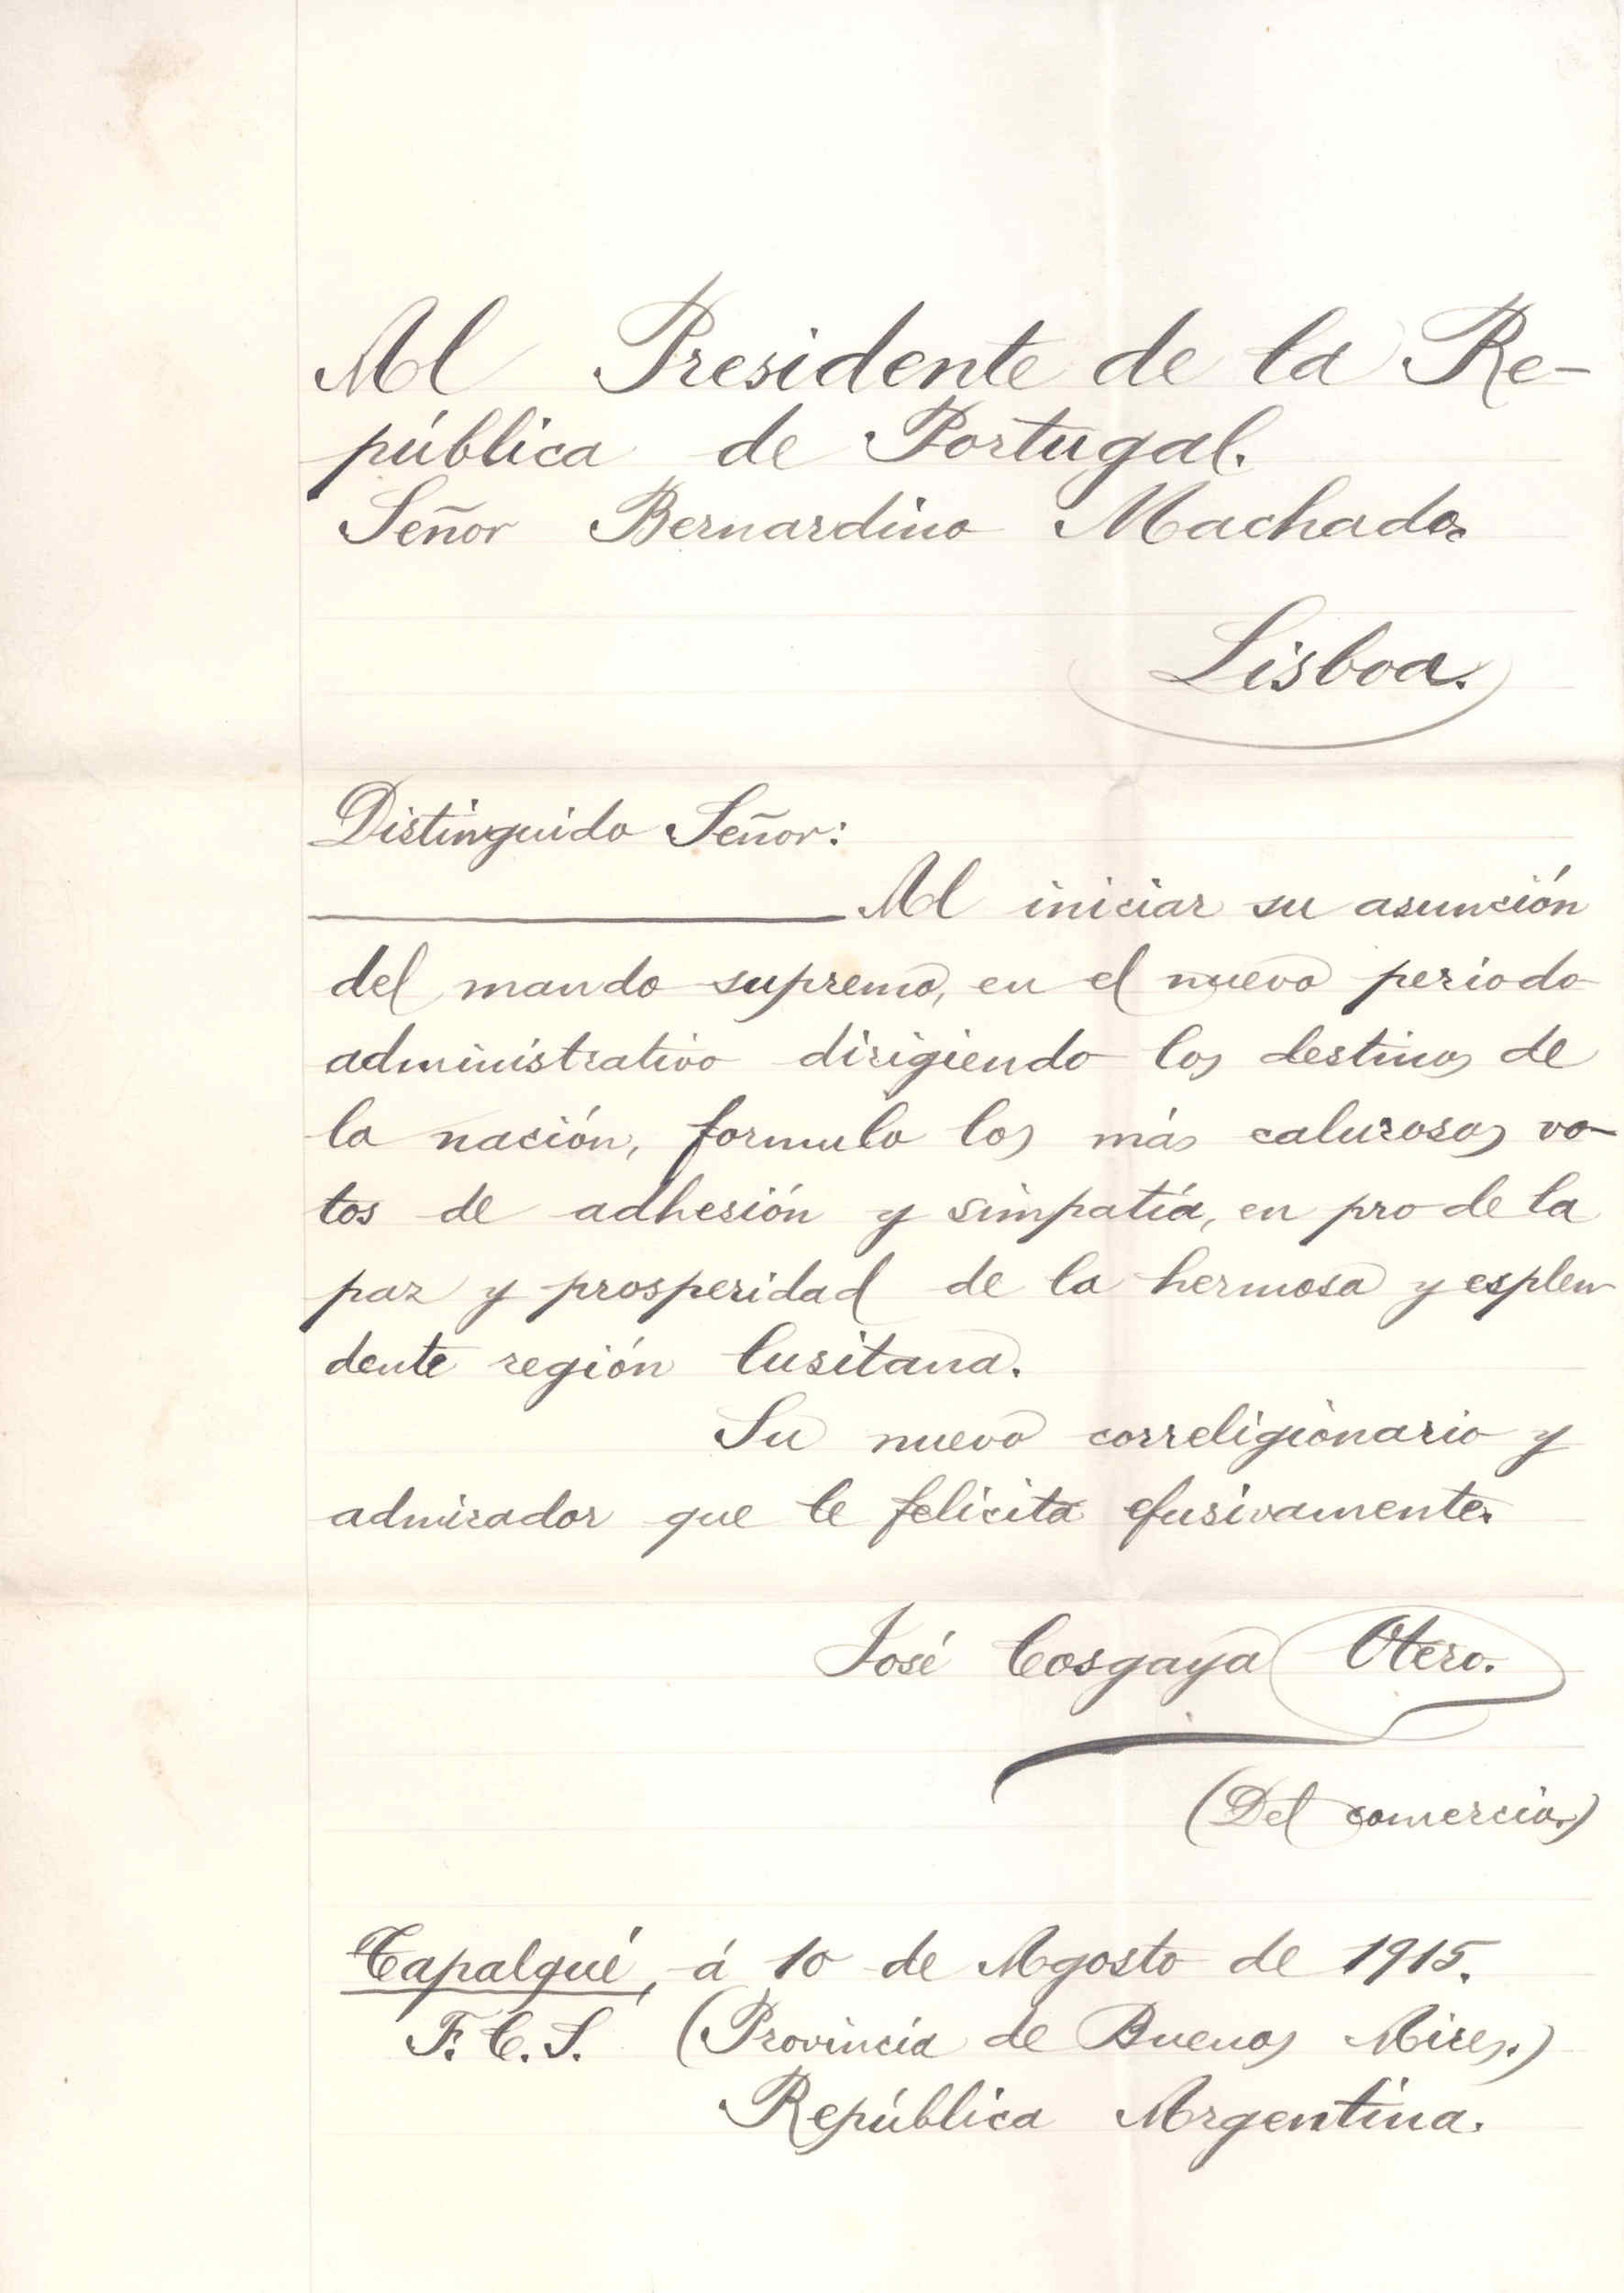 Al Presidente de la Re-
pública de Portugal.
Señor Bernardino Machado.
Lisboa.
Distinguido Señor:
Al iniciar su asunción
del mando supremo, en el nuevo periodo
administrativo dirigiendo los destinos de
la nación, formulo los más calurosos vo-
tos de adhesión y simpatía, en pro de la
paz y prosperidad de la hermosa y esplen
dente región lusitana.
Su nuevo correligionario y
admirador que le felicita efusivamente.
José Cosgaya Otero.
(Del comercio.)
Tapalqué, á 10 de Agosto de 1915.
F. C. S. (Provincia de Buenos Aires.)
República Argentina.